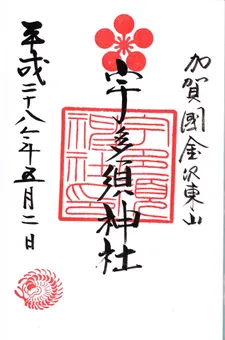 加賀國金沢東山
宇多須神社
平成二十八年五月二日